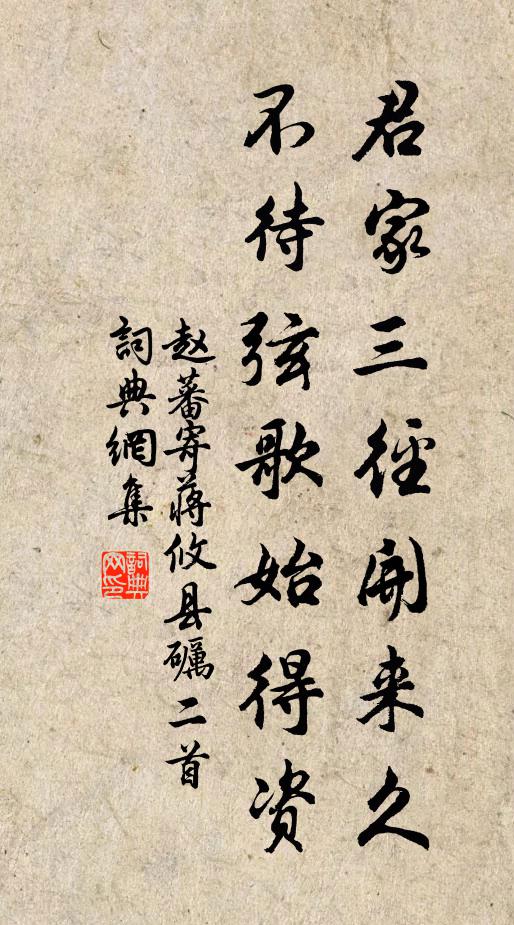 君家三径開来久
不待弦歌始得资
赵蕃寄蒋攸县礪二首
詞典網集
詞典网印